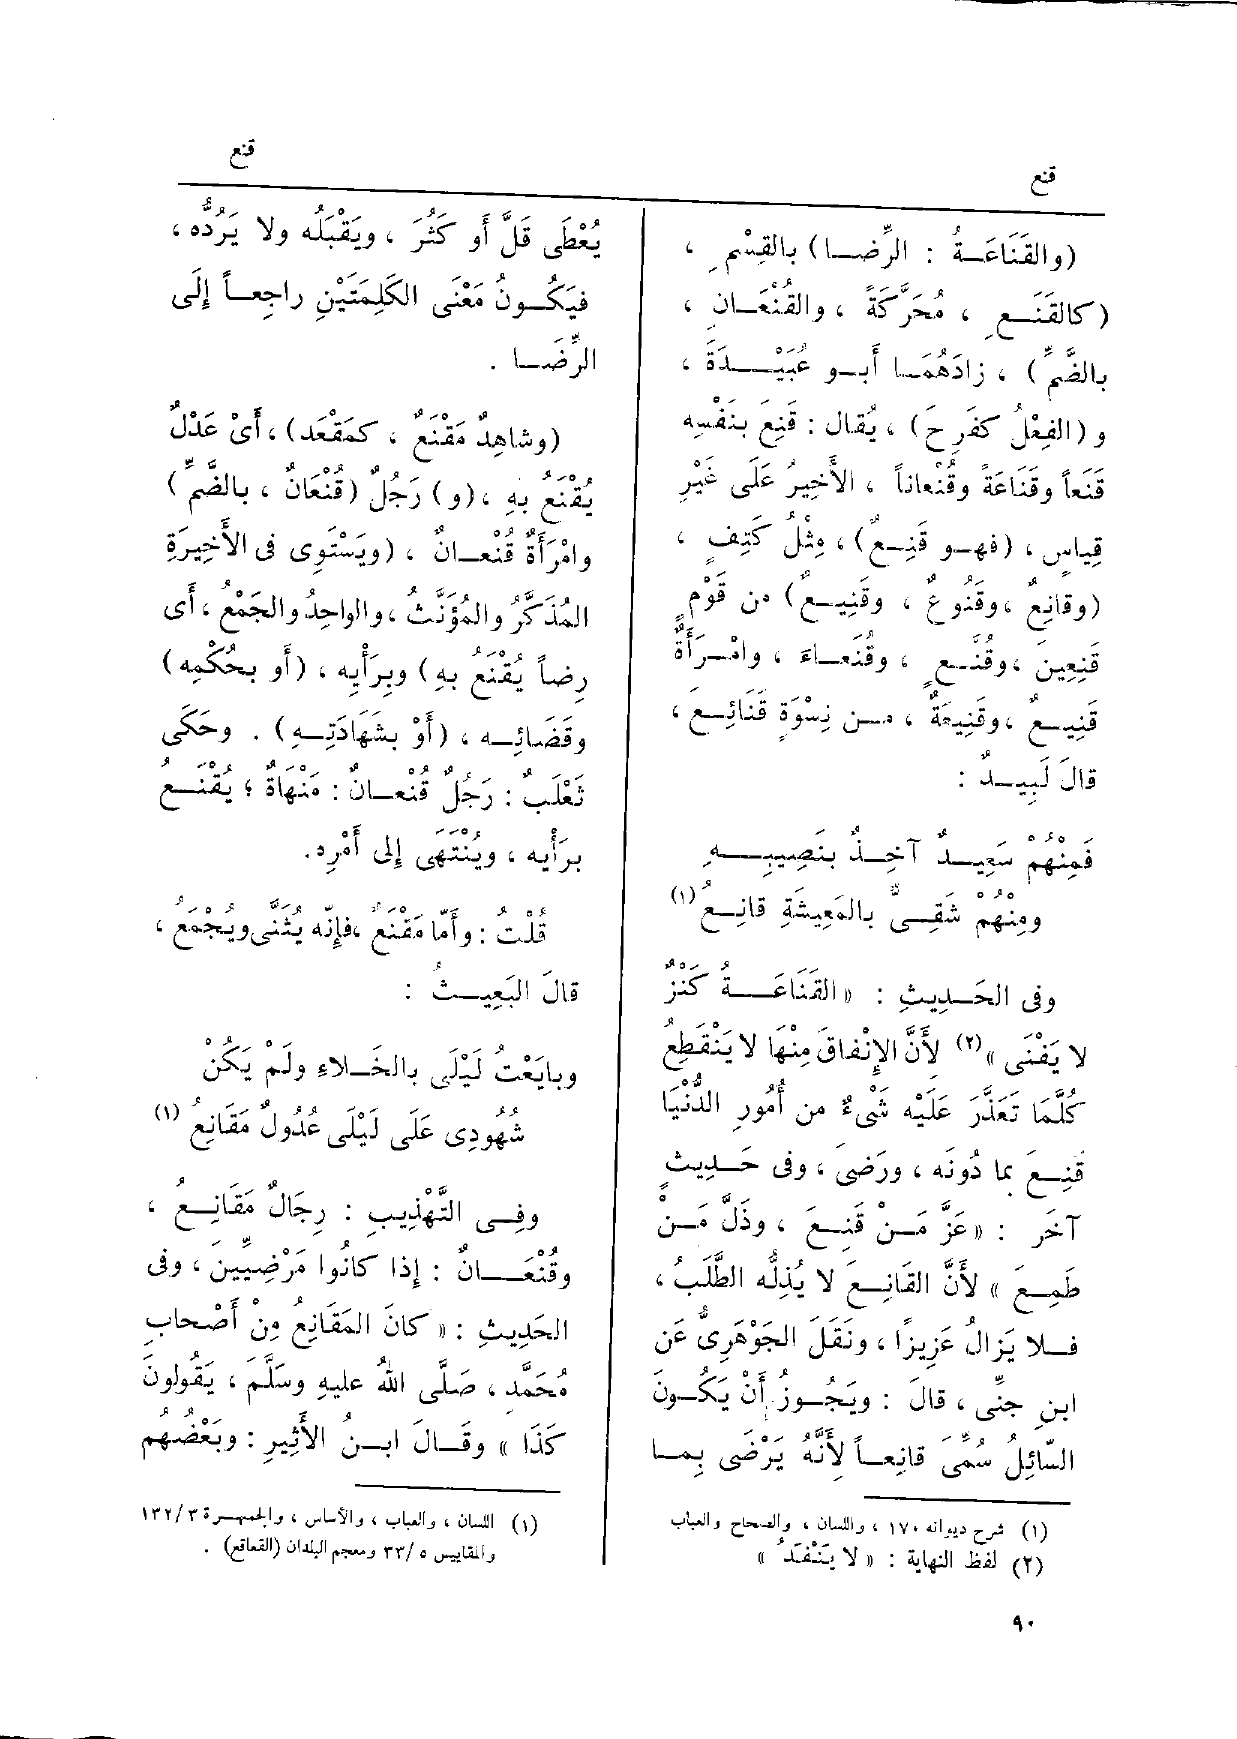 قنع
قنع
(والقَنَاعَــةُ : الرِّضــا) بالقِسْمِ ،
(كالقَنَــعِ ، مُحَرَّكَةً ، والقُنْعَــانِ ،
بالضَّمِّ) ، زادَهُمَــا أَبــو عُبَيْــدَةَ ،
و (الفِعْلُ كفَرِحَ) ، يُقال : قَنِعَ بنَفْسِه
قَنَعاً وقَنَاعَةً وقُنْعاناً ، الأَخيرُ عَلَى غَيْرِ
قِياسٍ ، (فهــو قَنِــعٌ) ، مِثْلُ كَتِفٍ ،
(وقانِعٌ ، وقَنُوعٌ ، وقَنِيــعٌ) من قَوْمٍ
قَنِعِينَ ، وقُنَّــعٍ ، وقُنَعــاءَ ، وامْــرَأَةٌ
قَنِيــعٌ ، وقَنِيعَةٌ ، مــن نِسْوَةٍ قَنائِــعَ ،
قالَ لَبِيــدٌ :
فَمِنْهُمْ سَعِيــدٌ آخِــذٌ بنَصِيبِــهِ
ومِنْهُمْ شَقِــىٌّ بالمَعِيشَةِ قانِــعُ (١)
وفى الحَــدِيثِ : « القَنَاعَــةُ كَنْزٌ
لا يَفْنَى » (٢) لأَنَّ الإِنْفاقَ مِنْهَا لا يَنْقَطِعُ
كُلَّمَا تَعَذَّرَ عَلَيْه شَىْءٌ من أُمُورِ الدُّنْيَا
قَنِــعَ بما دُونَه ، ورَضِىَ ، وفى حَــدِيثٍ
آخَر : « عَزَّ مَــنْ قَنِعَ ، وذَلَّ مَــنْ
طَمِــعَ » لأَنَّ القَانِــعَ لا يُذِلُّه الطَّلَبُ ،
فــلا يَزالُ عَزِيزًا ، ونَقَلَ الجَوْهَرِىُّ عَن
ابنِ جِنِّى ، قالَ : ويَجُــوزُ أَنْ يَكُــونَ
السّائِلُ سُمِّىَ قانِعــاً لأِنَّهُ يَرْضَى بِمــا
(١) شرح ديوانه ١٧٠ ، واللسان ، والصحاح والعباب
(٢) لفظ النهاية : « لا يَنْفَدُ »
يُعْطَى قَلَّ أَو كَثُرَ ، ويَقْبَلُه ولا يَرُدُّه ،
فيَكُــونُ مَعْنَى الكَلِمَتَيْنِ راجِعــاً إِلَى
الرِّضَــا .
(وشاهِدٌ مَقْنَعٌ ، كمَقْعَد) ، أَىْ عَدْلٌ
يُقْنَعُ بهِ ، (و) رَجُلٌ (قُنْعَانٌ ، بالضَّمِّ)
وامْرَأَةٌ قُنْعــانٌ ، (ويَسْتَوِى فى الأَخِيرَةِ
المُذَكَّرُ والمُؤَنَّثُ ، والواحِدُ والجَمْعُ ، أَى
رِضاً يُقْنَعُ بهِ) وبِرَأْيِه ، (أَو بحُكْمِه)
وقَضَائِــه ، (أَوْ بشَهَادَتِــهِ) . وحَكَى
ثَعْلَبٌ : رَجُلٌ قُنْعــانٌ : مَنْهَاةٌ ؛ يُقْنَــعُ
برَأْيِه ، ويُنْتَهَى إِلى أَمْرِه.
قُلْتُ : وأَمّا مَقْنَعٌ ،فإِنّه يُثَنَّى ويُجْمَعُ ،
قالَ البَعِيــثُ :
وبايَعْتُ لَيْلَى بالخَــلاءِ ولَمْ يَكُنْ
شُهُودِى عَلَى لَيْلَى عُدُولٌ مَقَانِعُ (١)
وفِــى التَّهْذِيبِ : رِجَالٌ مَقَانِــعُ ،
وقُنْعَــانٌ : إِذا كانُوا مَرْضِيِّينَ ، وفى
الحَدِيثِ : « كانَ المَقَانِعُ مِنْ أَصْحابِ
مُحَمَّد ، صَلَّى اللهُ عليهِ وسَلَّمَ ، يَقُولونَ
كَذَا » وقــالَ ابــنُ الأَثِيرِ : وبَعْضُهم
(١) اللسان ، والعباب ، والأساس ، والجمهــرة ٣/ ١٣٢
والمقاييس ٥ /٣٣ ومعجم البلدان (القعاقع) .
٩٠